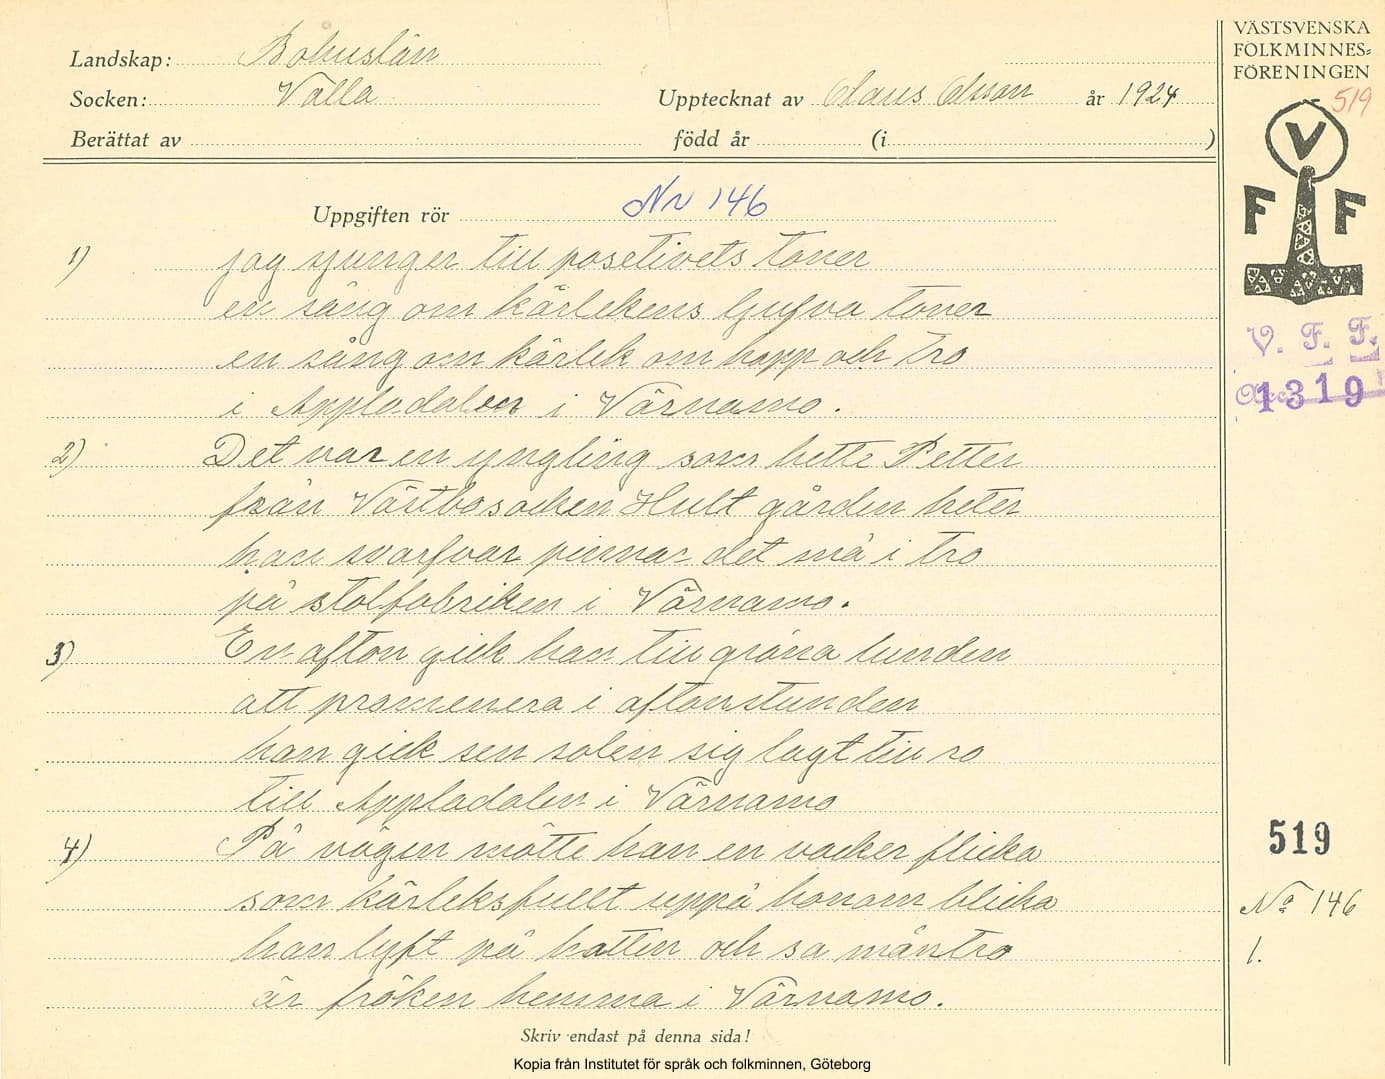 Landskap: Bohuslän
Socken: Valla
Upptecknat av Olaus Olsson år 1924
Berättat av född år (i )
VÄSTSVENSKA
FOLKMINNES=
FÖRENINGEN
519
V
F F
V. F. F.
Acc. 1319
Uppgiften rör Nr 146
1) jag sjunger till posetivets toner
en sång om kärlekens ljufva toner
en sång om kärlek om hopp och tro
i Appladalen i Värnamo.
2) Det var en yngling som hette Petter
från Västbosocken Hult gården heter
han svarfvar pinnar det må i tro
på stolfabriken i Värnamo.
3) En afton gick han till gröna lunden
att promenera i aftonstunden
han gick sen solen sig lagt till ro
till Appladalen i Värnamo
4) På vägen mötte han en vacker flicka
som kärleksfullt uppå honom blicka
han lyft på hatten och sa måntro
är fröken hemma i Värnamo.
519
No 146
1.
Skriv endast på denna sida!
Kopia från Institutet för språk och folkminnen, Göteborg